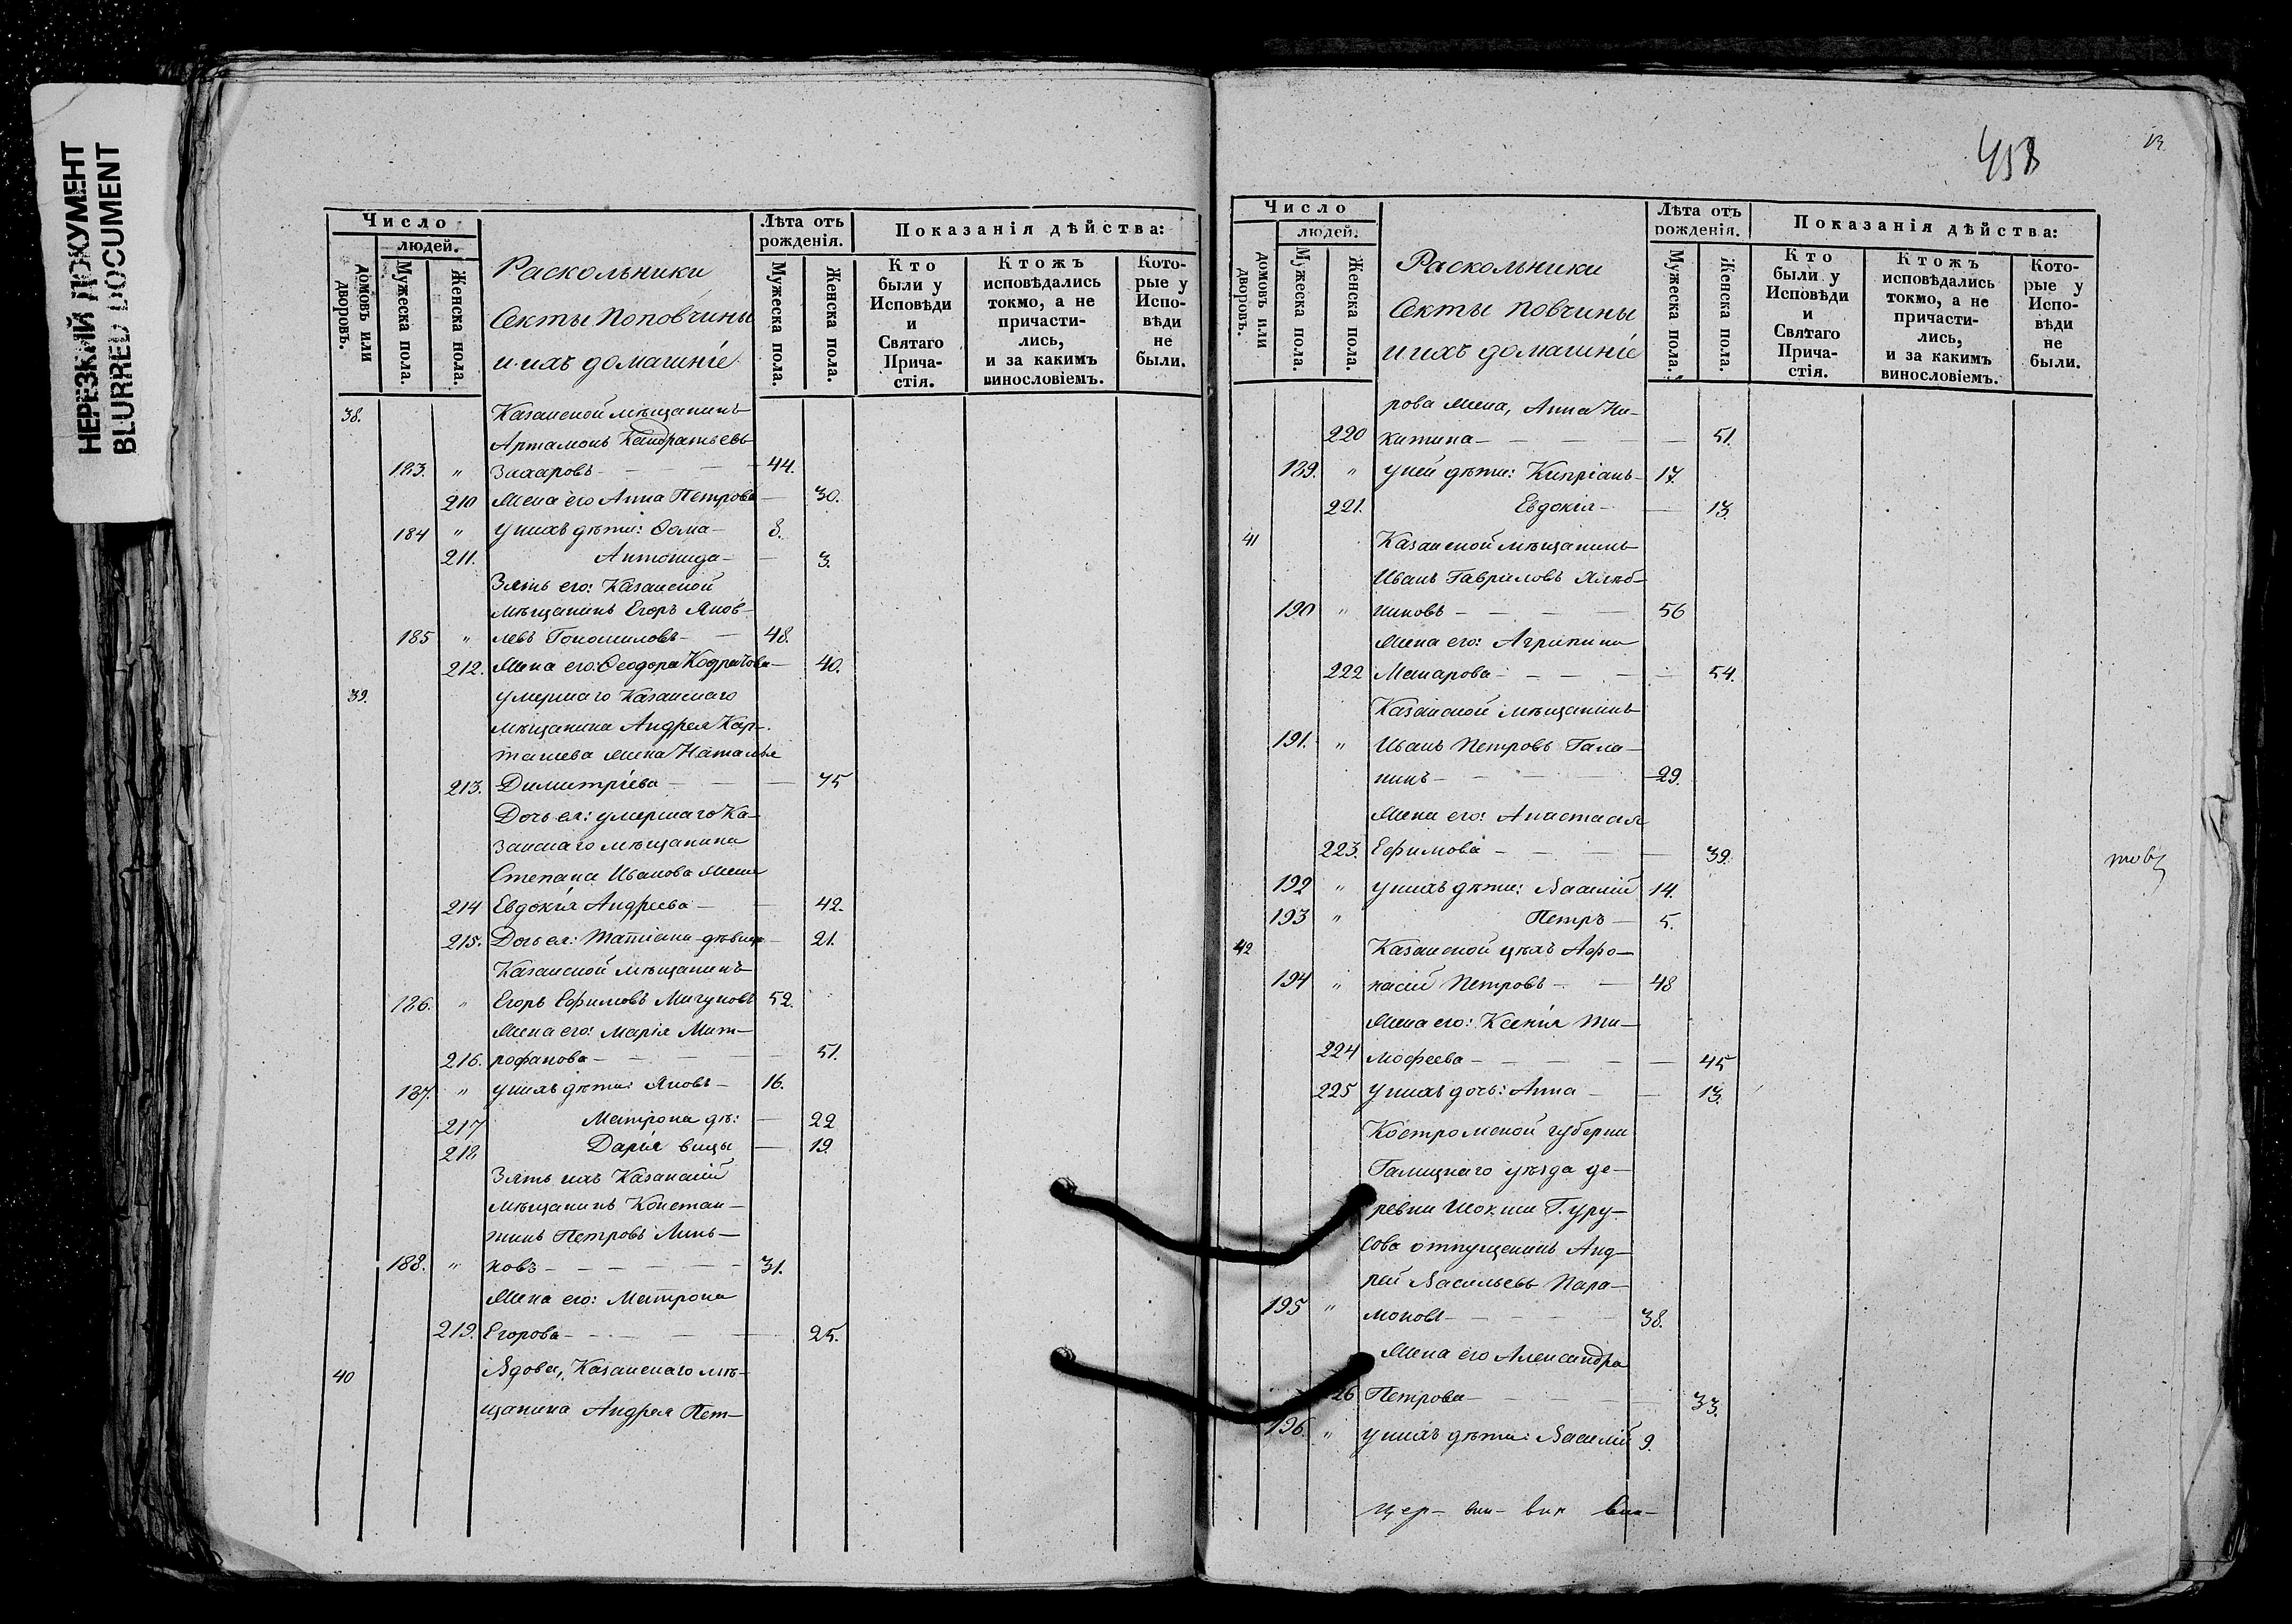 НЕРЕЗКИЙ ДОКУМЕНТ
BLURRED DOCUMENT
Число
людей.
домовъ или дворовъ.
Мужеска пола.
Женска пола.
Раскольники
Секты Поповчины
и ихъ домашніе
Лѣта отъ рожденія.
Мужеска пола.
Женска пола.
Показанія дѣйства:
Кто были у Исповѣди и Святаго Прича-стія.
Ктожъ исповѣдались токмо, а не причасти-лись, и за какимъ винословіемъ.
Кото-рые у Испо-вѣди не были.
38. Казанской мѣщанинъ
Артамонъ Кандратьевъ
183. " Захаровъ — 44.
210 Жена его Анна Петрова — 30.
184 " У нихъ дѣти: Ѳома — 8.
211. Антонида — 3.
Зять его: Казанской
мѣщанинъ Егоръ Яков-
185 " левъ — 48.
212. Жена его: Ѳеодора Кодратова — 40.
39. Умершаго Казанскаго
мѣщанина Андрея Кар-
ташева жена Наталья
213. Димитріева — 75
Дочь ея: умершаго Ка-
занскаго мѣщанина
Степана Иванова жена
214 Евдокія Андреева — 42.
215. Дочь ея: Татіана дѣвица — 21.
Казанской мѣщанинъ
186. " Егоръ Ефимовъ Мигуновъ 52.
Жена его: Марія Мит-
216. рофанова — 51.
187. " У нихъ дѣти: Яковъ — 16.
217 Матрона дѣ: — 22
218 Дарія вицы — 19.
Зять ихъ Казанскій
мѣщанинъ Констан-
тинъ Петровъ Линь-
188. " ковъ — 31.
Жена его: Матрона
219. Егорова — 25.
40 Вдова, Казанскаго мѣ-
щанина Андрея Пет-
458
13
Число
людей.
домовъ или дворовъ.
Мужеска пола.
Женска пола.
Раскольники
Секты Повчины
и ихъ домашніе
Лѣта отъ рожденія.
Мужеска пола.
Женска пола.
Показанія дѣйства:
Кто были у Исповѣди и Святаго Прича-стія.
Ктожъ исповѣдались токмо, а не причасти-лись, и за какимъ винословіемъ.
Кото-рые у Испо-вѣди не были.
рова жена, Анна Ни-
220 китина — 51.
189. " У ней дѣти: Кипріанъ — 17.
221. Евдокія — 13.
41 Казанской мѣщанинъ
Иванъ Гавриловъ Хлѣб-
190 " никовъ — 56
Жена его: Агрипина
222 Макарова — 54.
Казанской мѣщанинъ
191. " Иванъ Петровъ Гала-
нинъ — 29.
Жена его: Анастасія
223. Ефимова — 39.
192 " У нихъ дѣти: Василій 14.
193 " Петръ — 5.
42 Казанской цѣхъ Афо-
194 " насій Петровъ — 48
Жена его: Ксенія Ти-
224 мофеева — 45
225 У нихъ дочь: Анна — 13.
Костромской губерни
Галицкаго уѣзда де-
ревни Шокши Г. Уру-
сова отпущенникъ Анд-
рей Васильевъ Пара-
195 " моновъ — 38.
Жена его Александра
26 Петрова — 33.
196. " У нихъ дѣти: Василій 9.